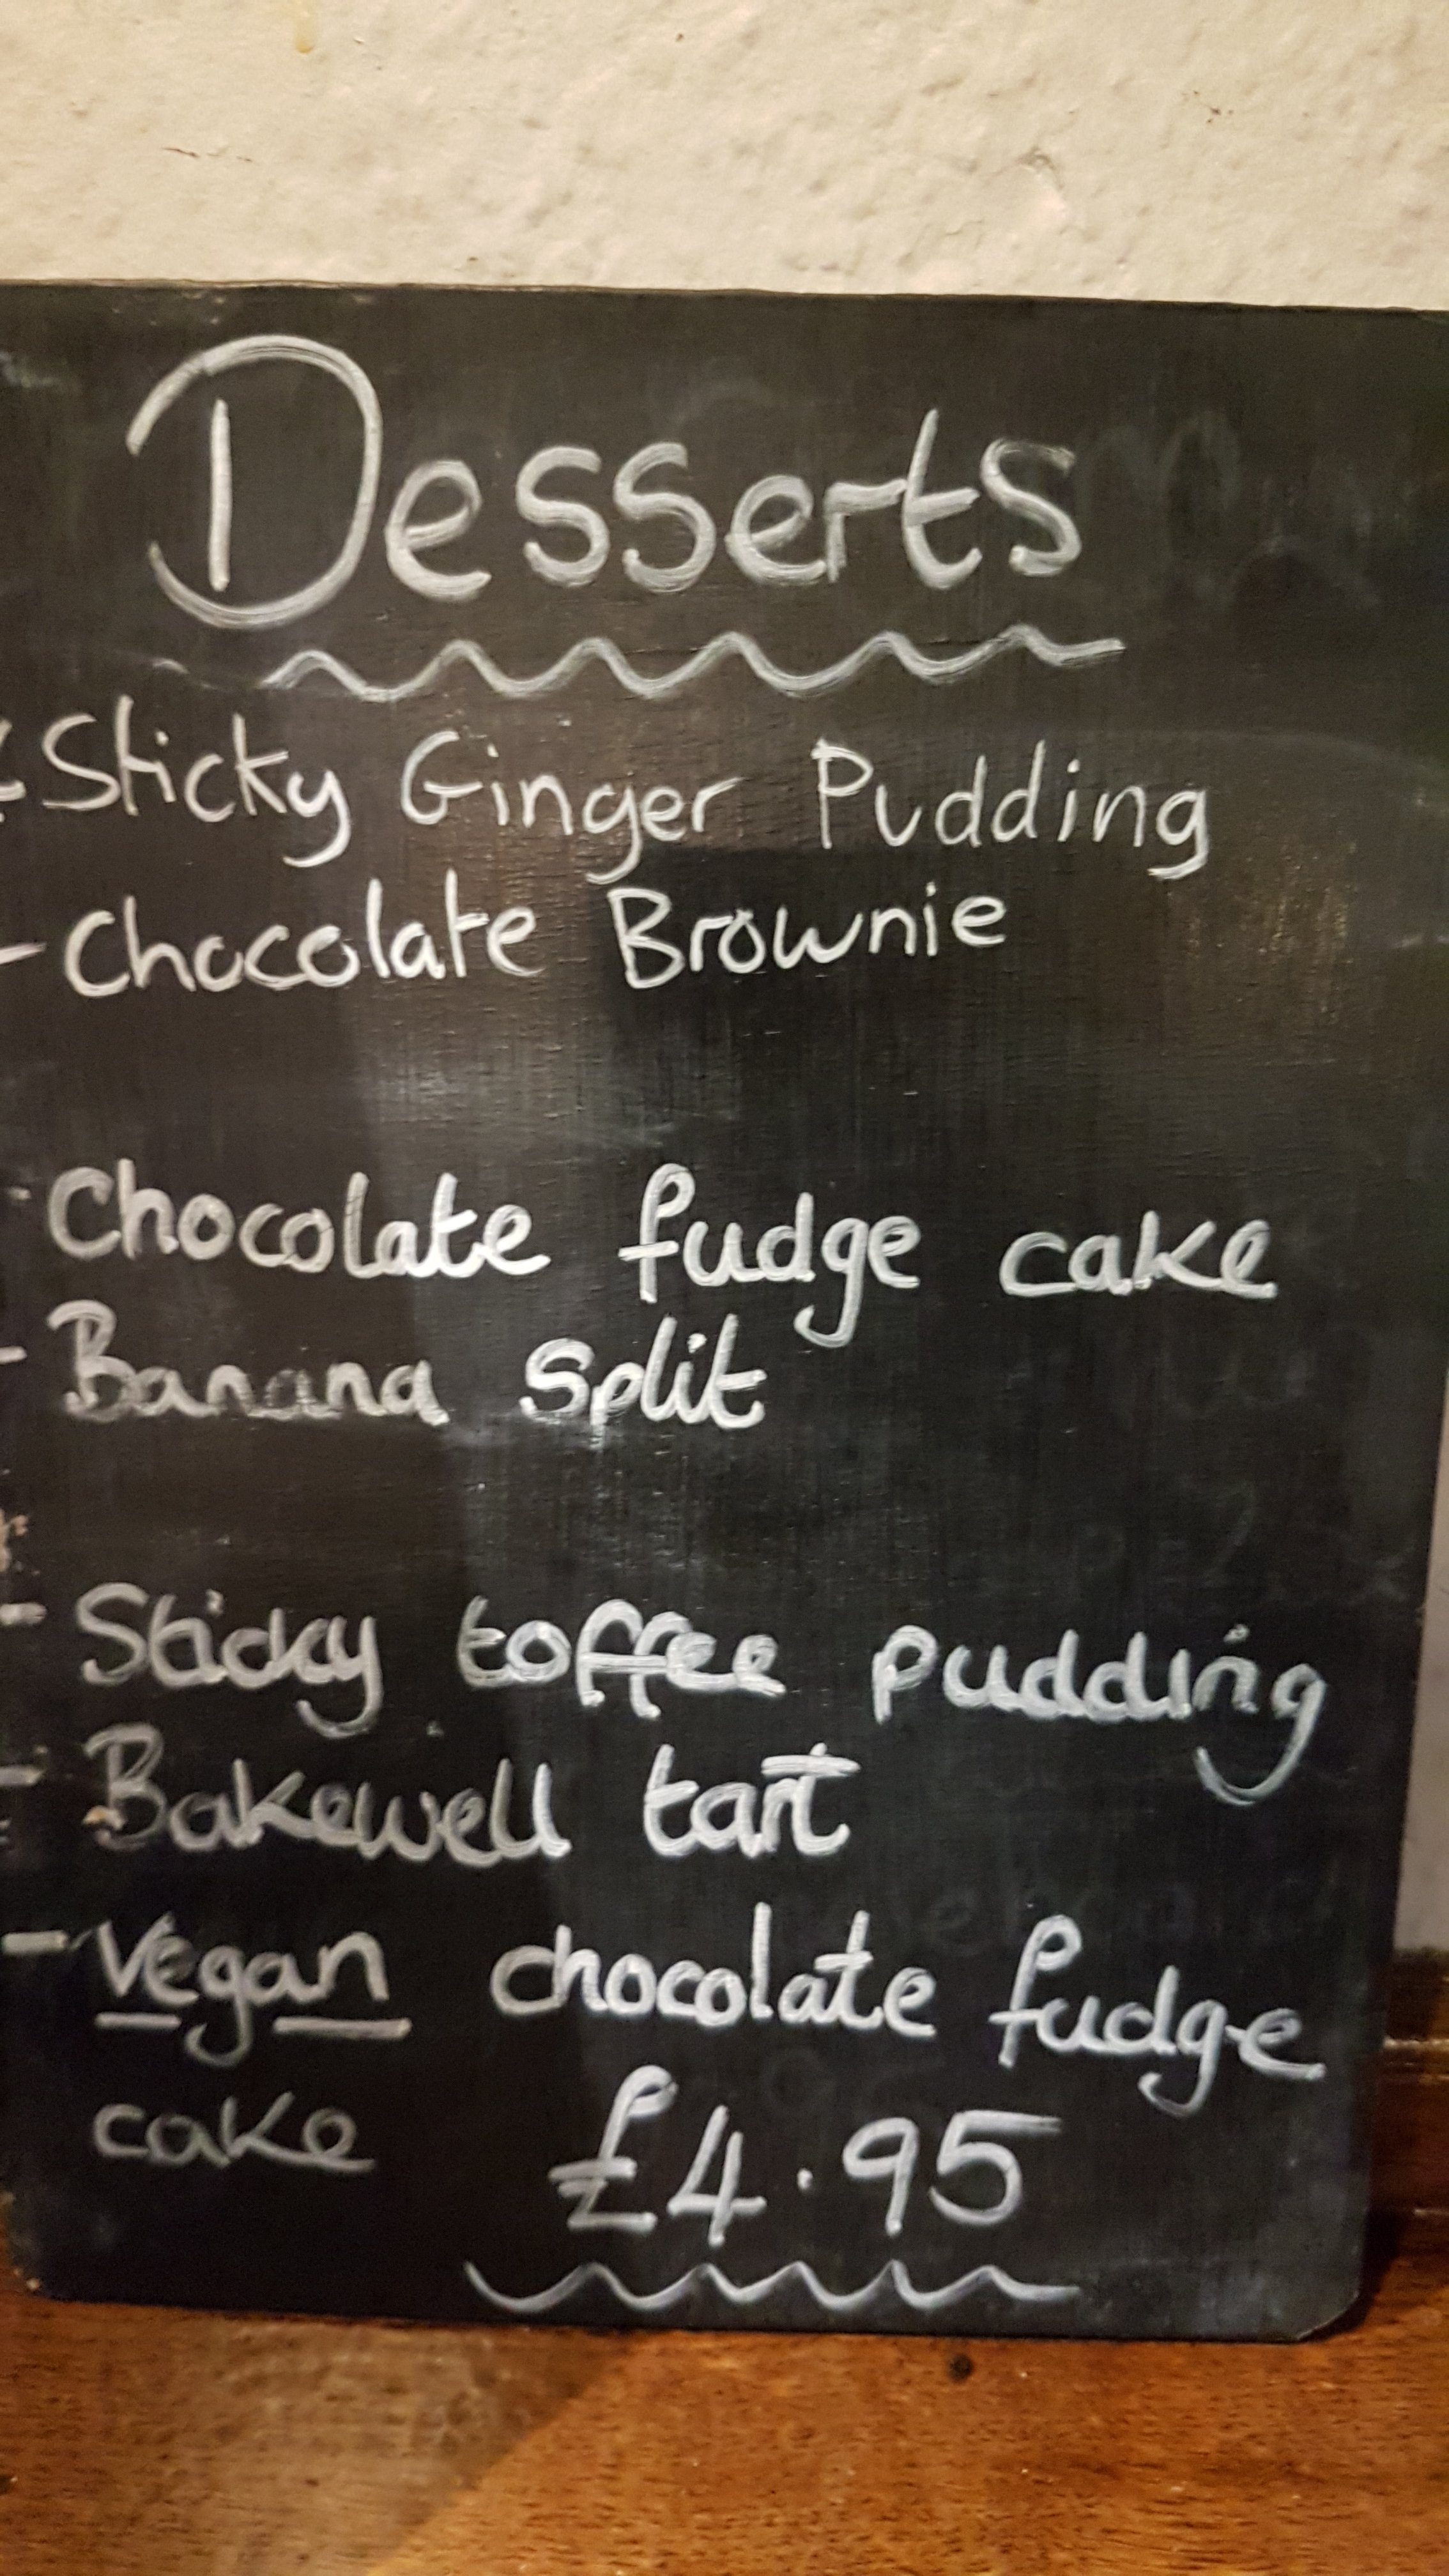 Desserts
Sticky Ginger Pudding
- Chocolate Brownie
- Chocolate fudge cake
- Banana Split
- Sticky toffee pudding
- Bakewell tart
- Vegan chocolate fudge
cake £4.95